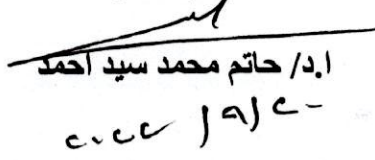 ا.د/ حاتم محمد سيد احمد
٢٠/٩/٢٠٢٢